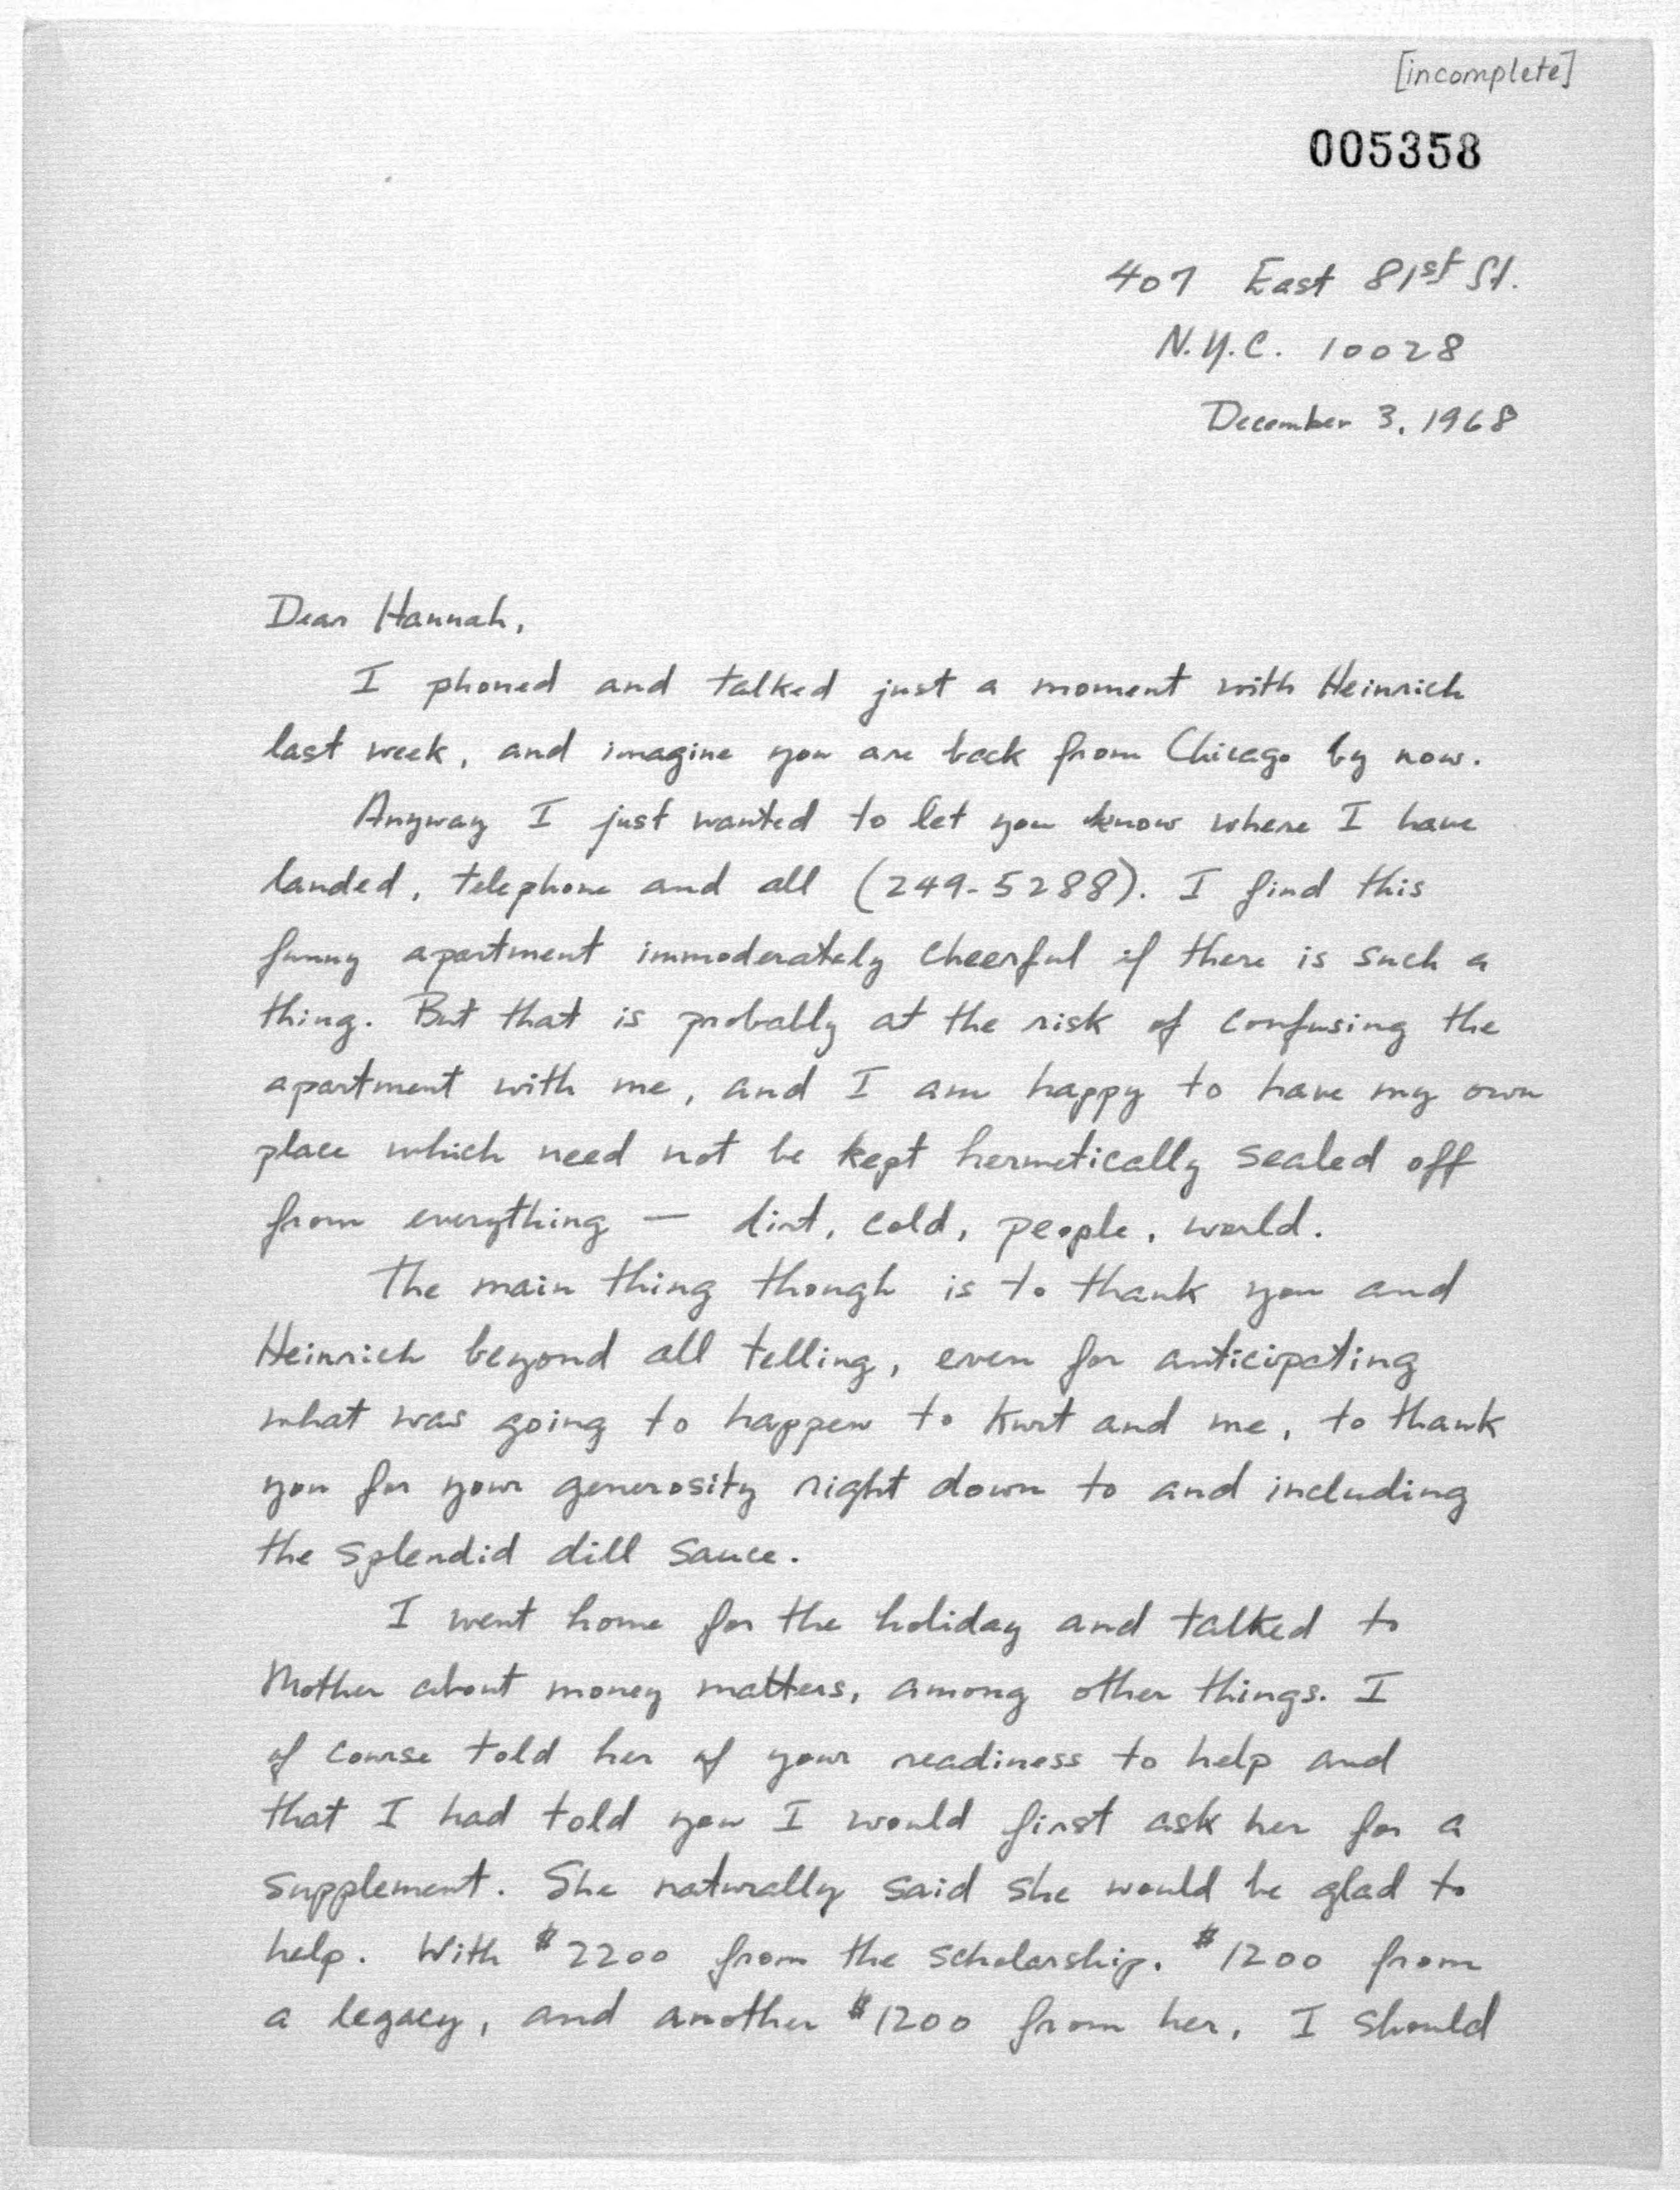 [incomplete]
005358
407 East 81st St.
N.Y.C. 10028
December 3, 1968
Dear Hannah,
I phoned and talked just a moment with Heinrich
last week, and imagine you are back from Chicago by now.
Anyway I just wanted to let you know where I have
landed, telephone and all (249-5288). I find this
funny apartment immoderately cheerful if there is such a
thing. But that is probably at the risk of confusing the
apartment with me, and I am happy to have my own
place which need not be kept hermetically sealed off
from everything — dirt, cold, people, world.
The main thing though is to thank you and
Heinrich beyond all telling, even for anticipating
what was going to happen to Kurt and me, to thank
you for your generosity right down to and including
the splendid dill sauce.
I went home for the holiday and talked to
Mother about money matters, among other things. I
of course told her of your readiness to help and
that I had told you I would first ask her for a
supplement. She naturally said she would be glad to
help. With $2200 from the scholarship, $1200 from
a legacy, and another $1200 from her, I should